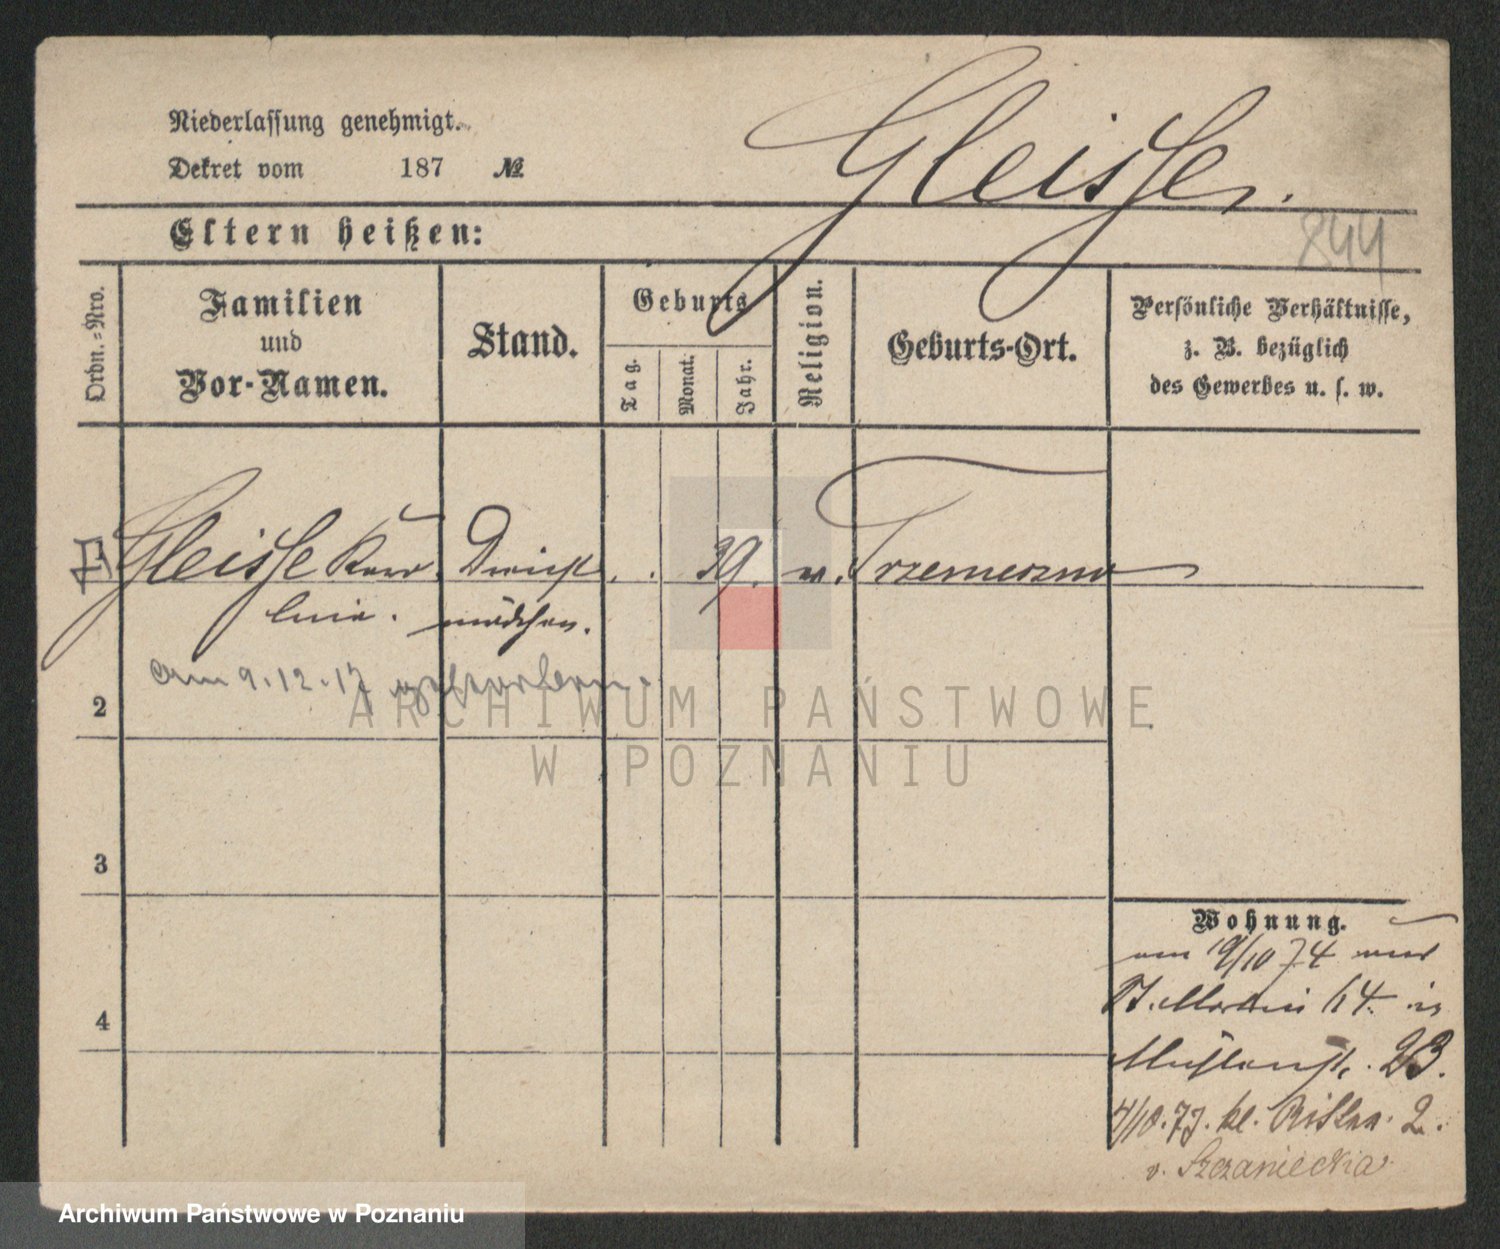 Niederlassung genehmigt.
Dekret vom 187 №
Gleisse.
844
Eltern heißen:
Ordn.-Nro.
Familien
und
Vor-Namen.
Stand.
Geburts
Tag.
Monat.
Jahr.
Religion.
Geburts-Ort.
Persönliche Verhältnisse,
z. B. bezüglich
des Gewerbes u. s. w.
Gleisse Karo Dienst 39. Trzemeszno
line. mädchen.
am 9.12.17 gestorben.
2
3
4
Wohnung.
am 19/10 74 aus
St. Martin 64 in
Mühlenst. 23.
4/10. 77. kl. Ritter. 2.
v. Szczaniecka
ARCHIWUM PAŃSTWOWE
W POZNANIU
Archiwum Państwowe w Poznaniu